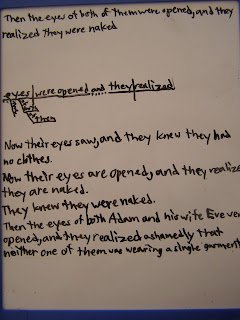 Then the eyes of both of them were opened, and they
realized they were naked
eyes were opened, and .... they realized
the
both
then
Now their eyes saw, and they knew they had
no clothes.
Now their eyes are opened, and they realize
they are naked.
They knew they were naked.
Then the eyes of both Adam and his wife Eve were
opened, and they realized ashamedly that
neither one of them was wearing a single garment